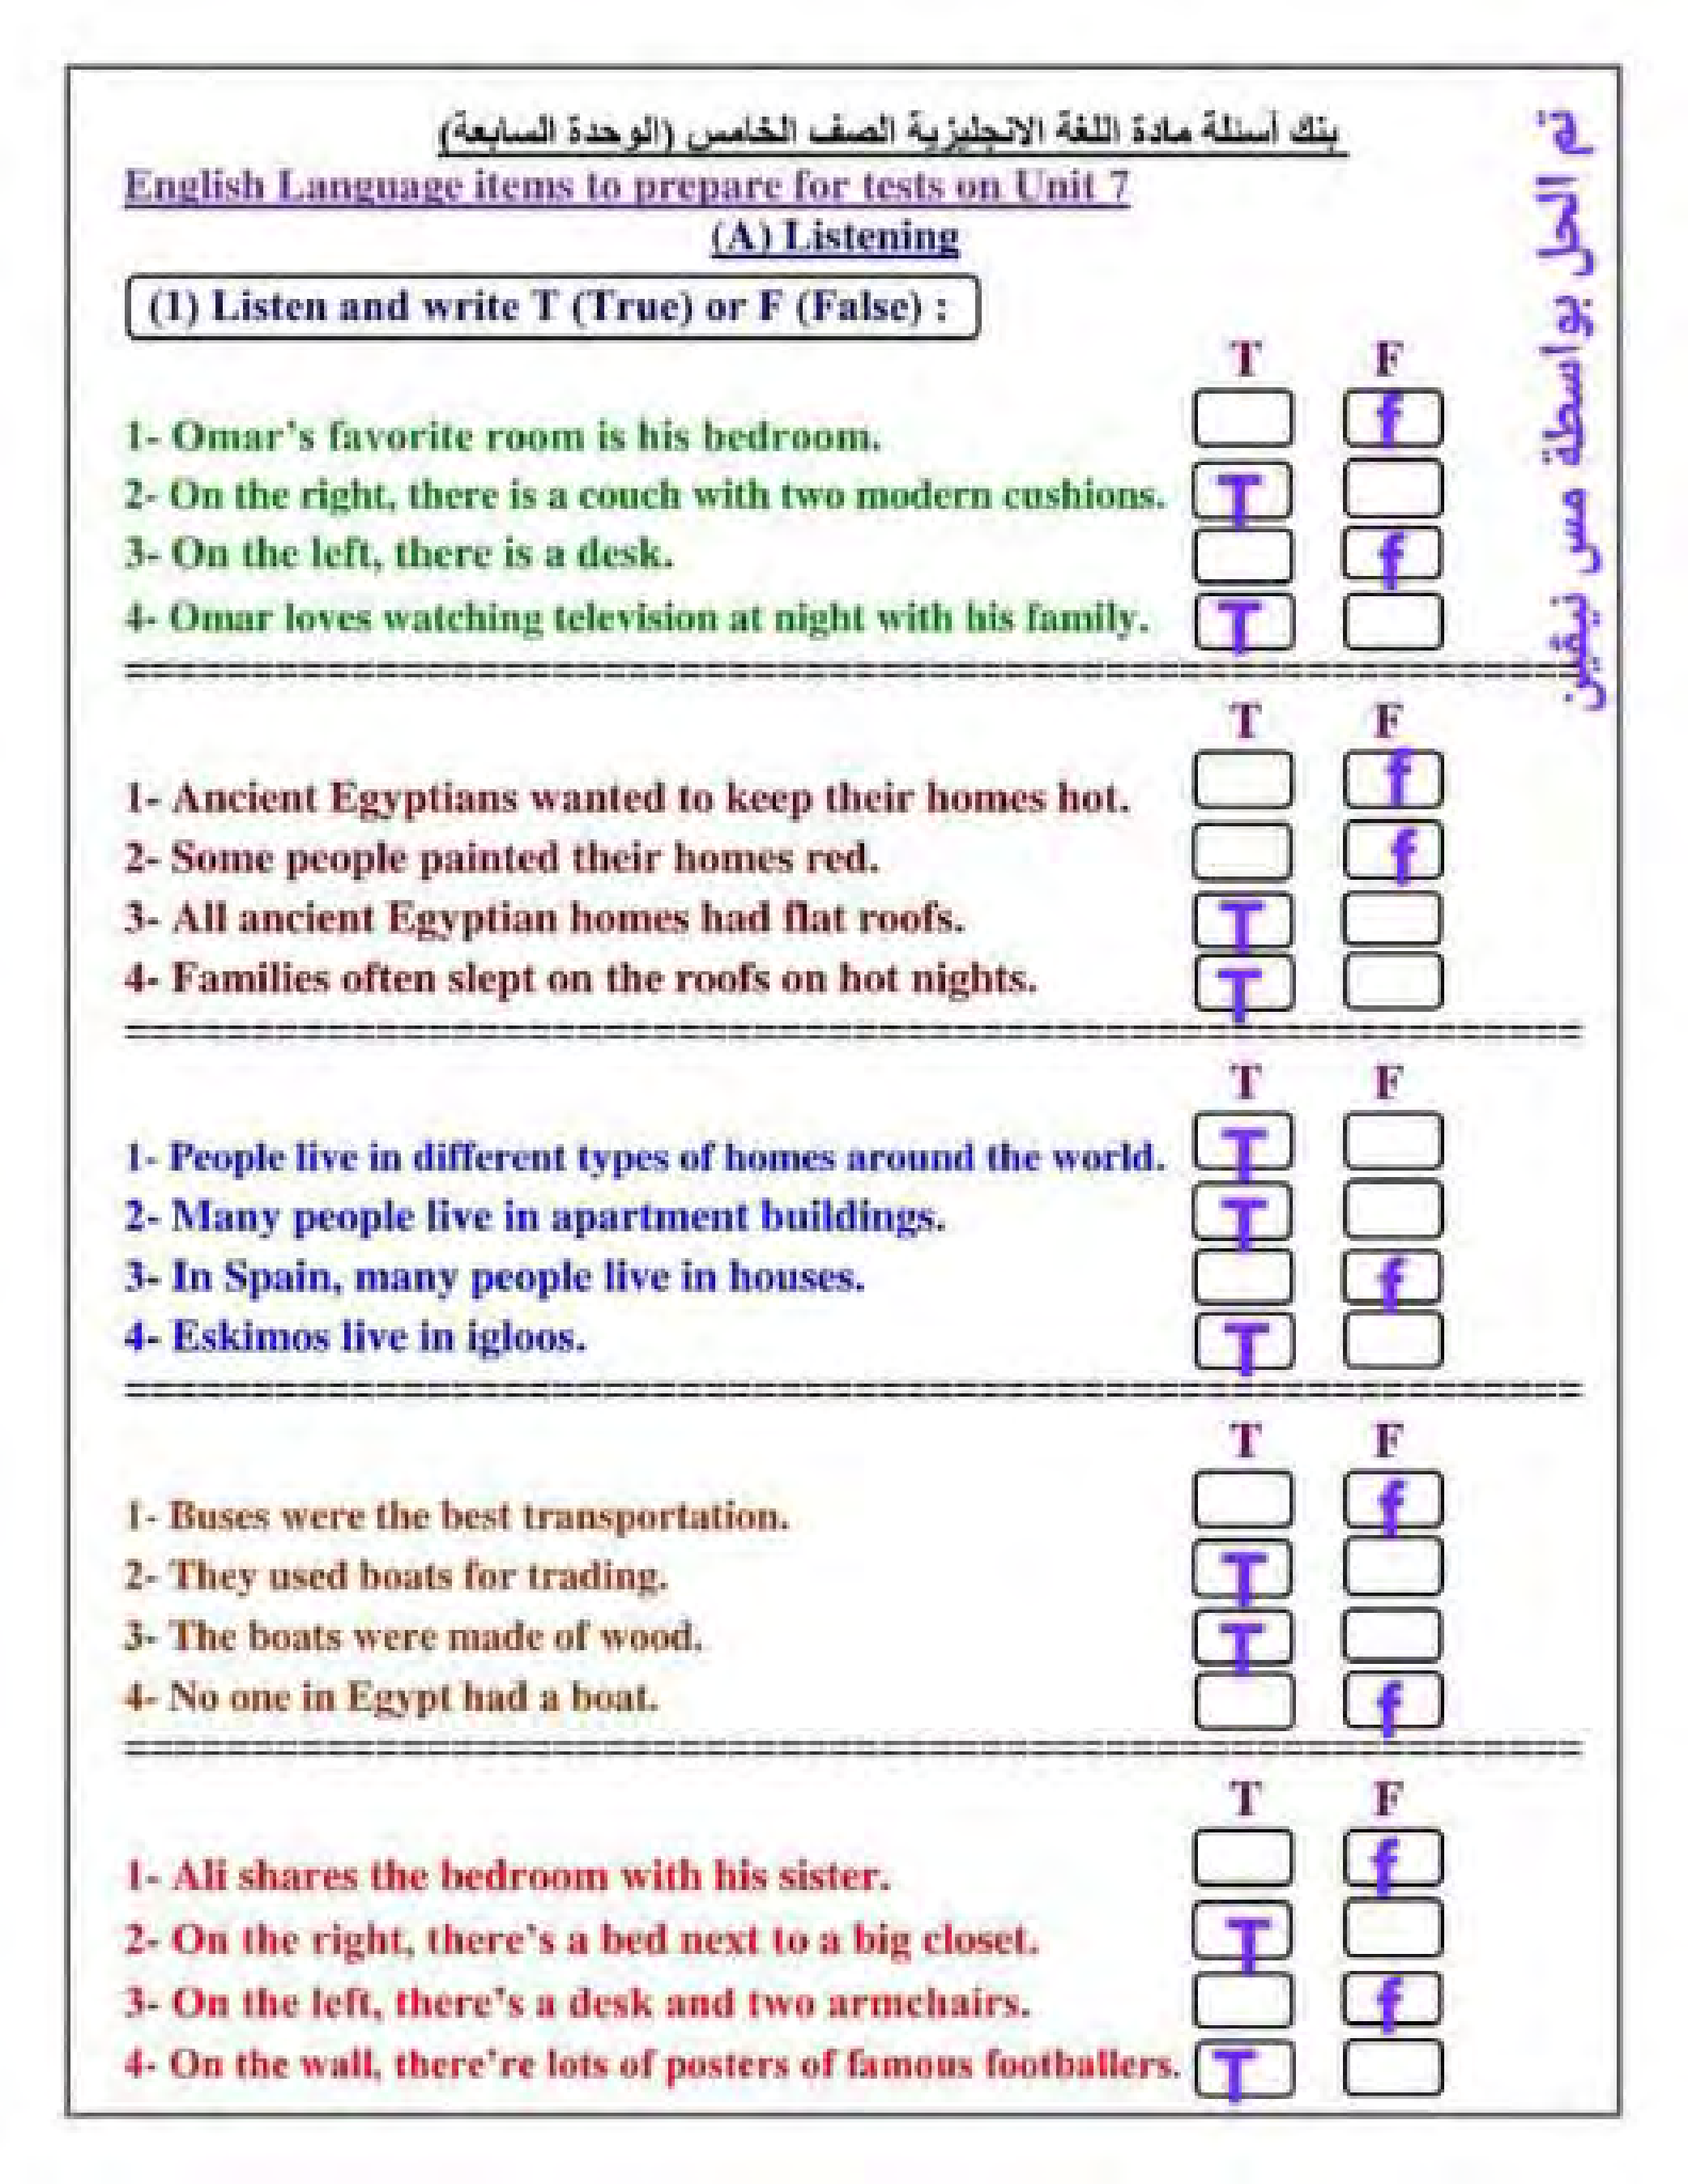 بنك أسئلة مادة اللغة الانجليزية الصف الخامس (الوحدة السابعة)
English Language items to prepare for tests on Unit 7
(A) Listening
(1) Listen and write T (True) or F (False) :
T F
1- Omar's favorite room is his bedroom. f
2- On the right, there is a couch with two modern cushions. T
3- On the left, there is a desk. f
4- Omar loves watching television at night with his family. T
T F
1- Ancient Egyptians wanted to keep their homes hot. f
2- Some people painted their homes red. f
3- All ancient Egyptian homes had flat roofs. T
4- Families often slept on the roofs on hot nights. T
T F
1- People live in different types of homes around the world. T
2- Many people live in apartment buildings. T
3- In Spain, many people live in houses. f
4- Eskimos live in igloos. T
T F
1- Buses were the best transportation. f
2- They used boats for trading. T
3- The boats were made of wood. T
4- No one in Egypt had a boat. f
T F
1- Ali shares the bedroom with his sister. f
2- On the right, there's a bed next to a big closet. T
3- On the left, there's a desk and two armchairs. f
4- On the wall, there're lots of posters of famous footballers. T
تم الحل بواسطة مس نيڤين